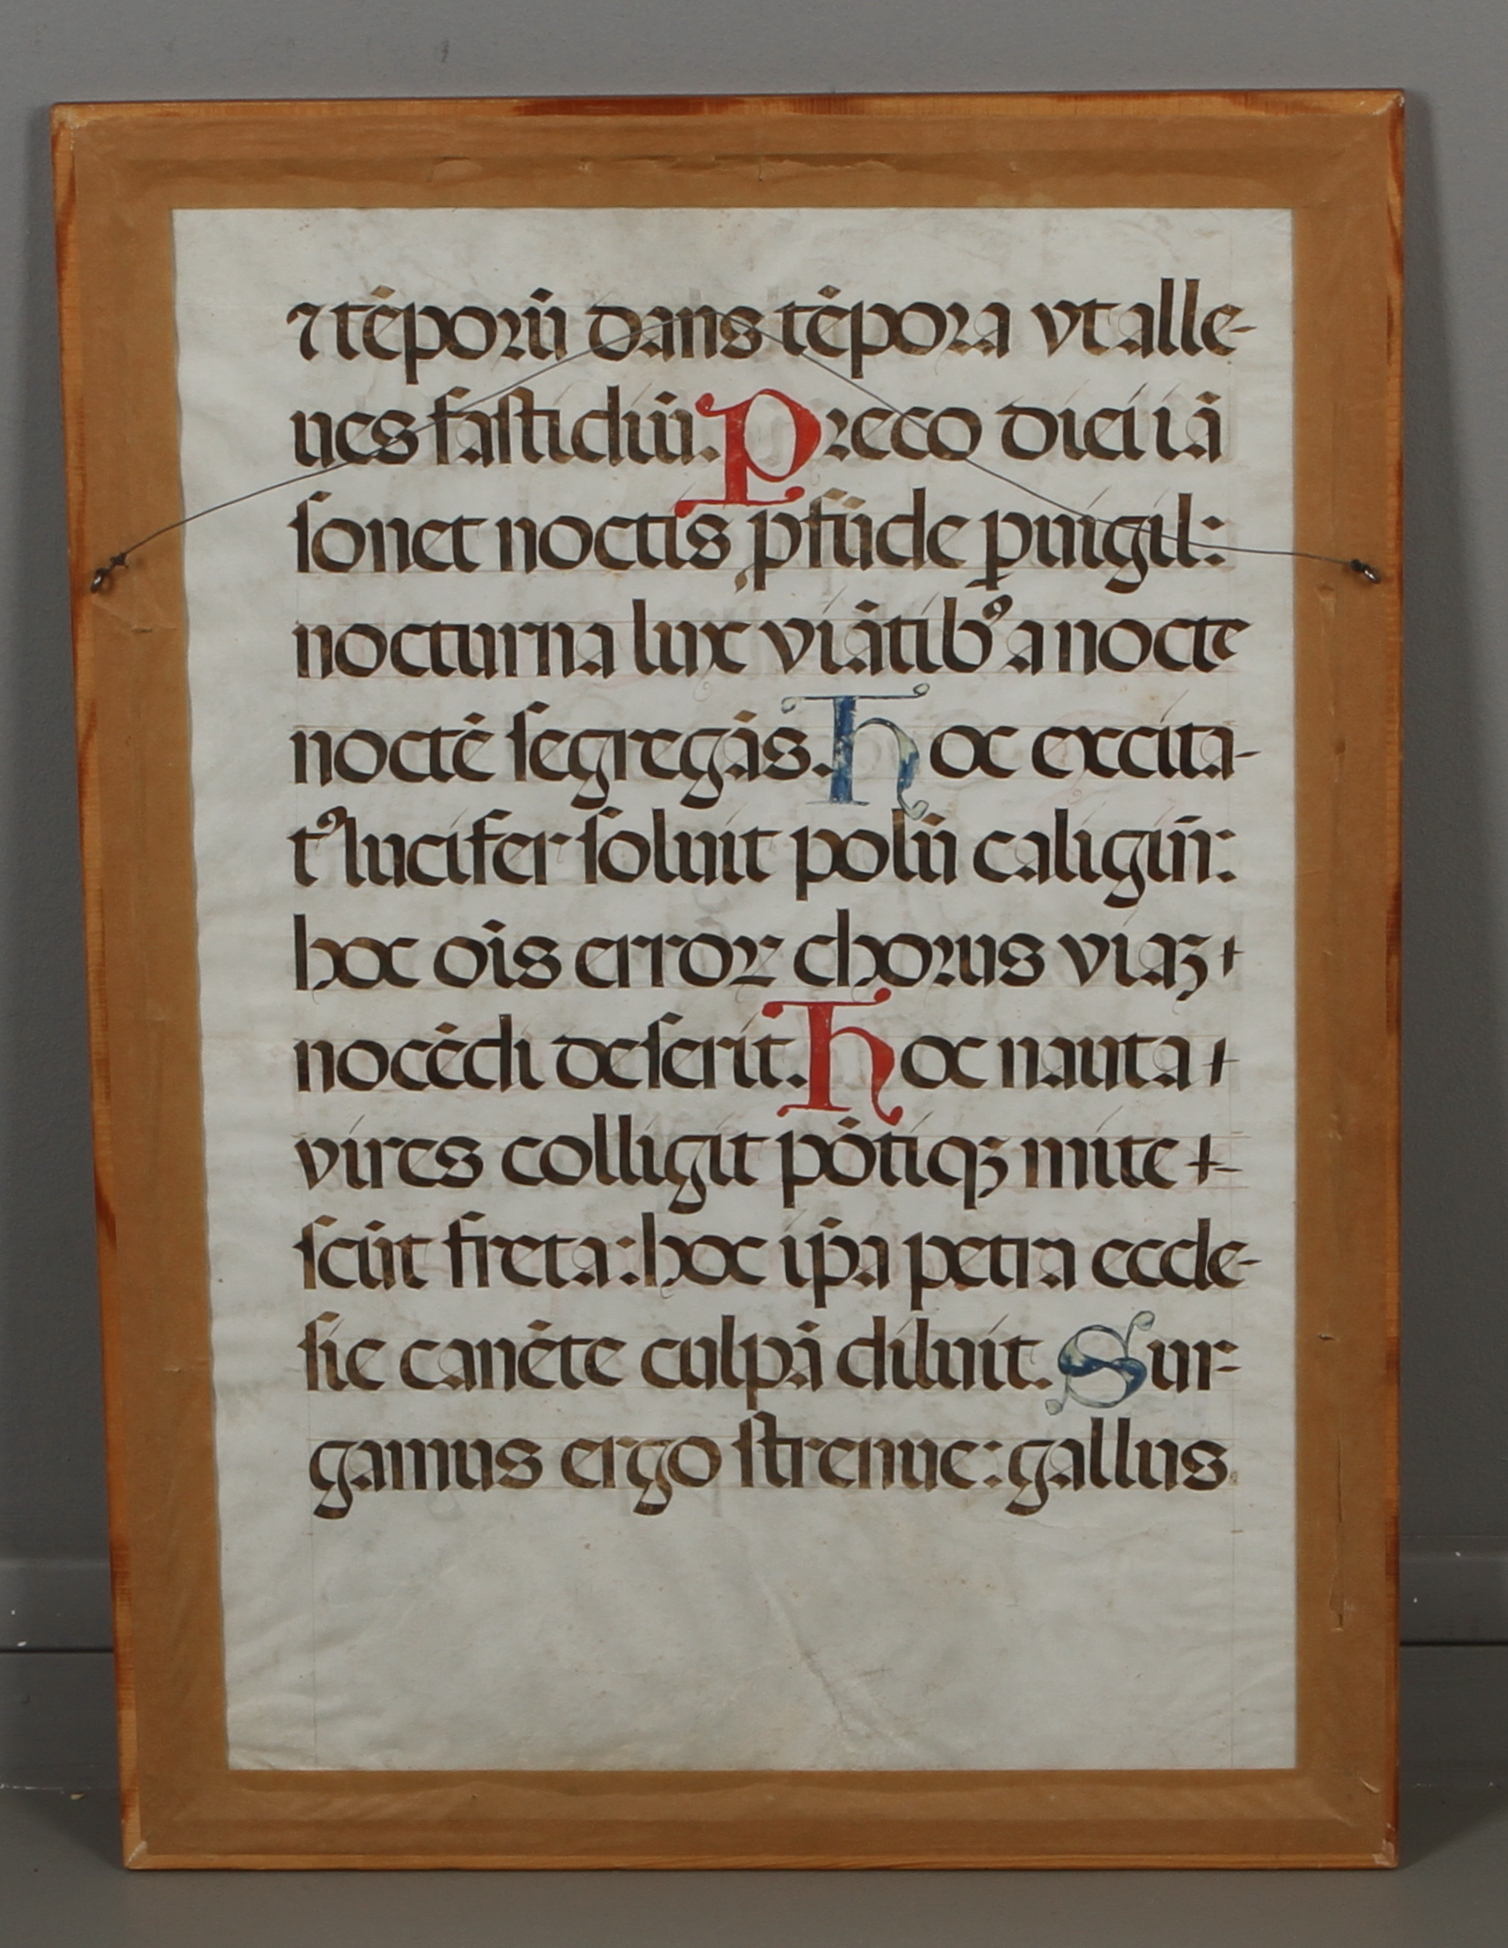 ⁊ tēporū dans tēpora vt alle-
ues fastidiū. Preco diei iā
sonet noctis ꝓfūde ꝑuigil:
nocturna lux viātibꝰ a nocte
noctē segregās. Hoc excita-
tꝰ lucifer soluit polū caligin̄:
hoc oīs error chorus viaꝝ
nocēdi deserit. Hoc nauta
vires colligit pōtiqꝫ mite-
scūt freta: hoc ip̄a petra eccle-
sie canēte culpā diluit. Sur-
gamus ergo strenue: gallus